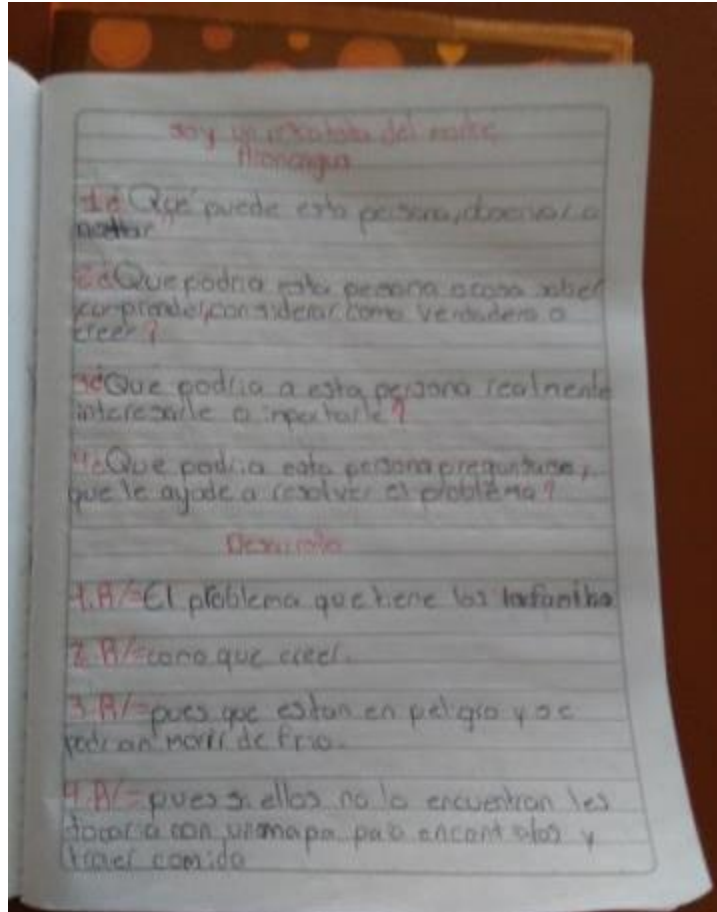 soy un rescatista del monte,
Aconcagua
1.¿Qué puede esta persona, observar o
notar
2¿Que podria esta persona acaso saber
comprender, considerar como verdadero o
creer?
3¿Que podria a esta persona realmente
interesarle o inportarle?
4¿Que podria esta persona preguntarse,
que le ayude a resolver el problema?
Desarrollo
1.R/=El problema que tiene los
2.R/=como que creer.
3.R/=pues que estan en peligro y se
podrian morir de frio.
4.R/=pues si ellos no lo encuentran les
tocaria con un mapa para y
traer comida